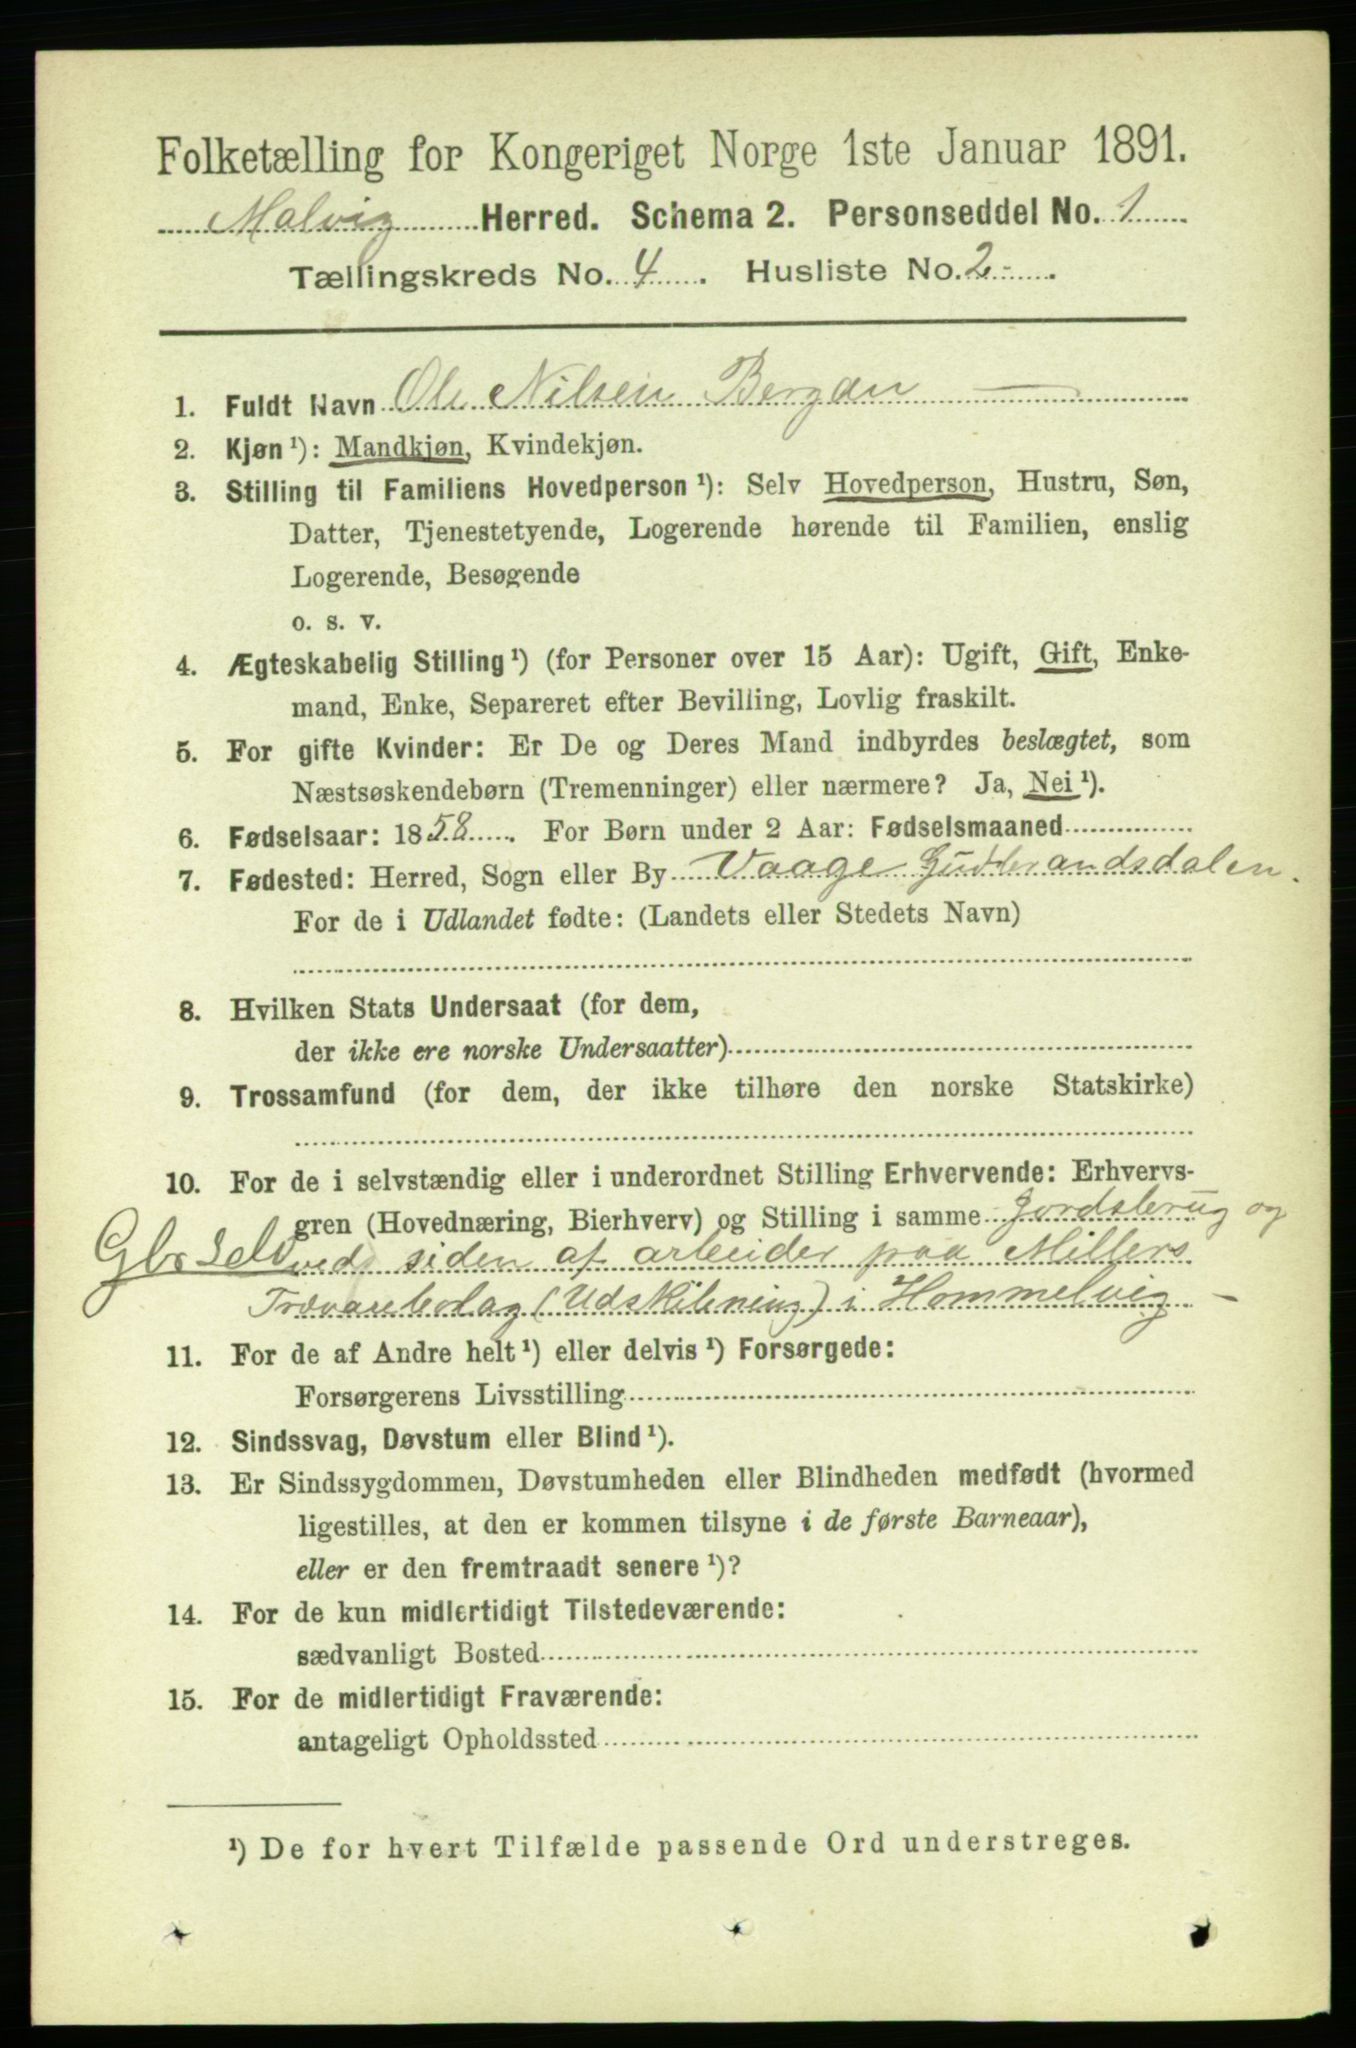 Folketælling for Kongeriget Norge 1ste Januar 1891.
Malvig Herred. Schema 2. Personseddel No. 1
Tællingskreds No. 4. Husliste No. 2
1. Fuldt Navn Ole Nilsen Bergan
2. Kjøn ¹): Mandkjøn, Kvindekjøn.
3. Stilling til Familiens Hovedperson ¹): Selv Hovedperson, Hustru, Søn,
Datter, Tjenestetyende, Logerende hørende til Familien, enslig
Logerende, Besøgende
o. s. v.
4. Ægteskabelig Stilling ¹) (for Personer over 15 Aar): Ugift, Gift, Enke-
mand, Enke, Separeret efter Bevilling, Lovlig fraskilt.
5. For gifte Kvinder: Er De og Deres Mand indbyrdes beslægtet, som
Næstsøskendebørn (Tremenninger) eller nærmere? Ja, Nei ¹).
6. Fødselsaar: 1858. For Børn under 2 Aar: Fødselsmaaned
7. Fødested: Herred, Sogn eller By Vaage Gudbrandsdalen.
For de i Udlandet fødte: (Landets eller Stedets Navn)
8. Hvilken Stats Undersaat (for dem,
der ikke ere norske Undersaatter)
9. Trossamfund (for dem, der ikke tilhøre den norske Statskirke)
10. For de i selvstændig eller i underordnet Stilling Erhvervende: Erhvervs-
gren (Hovednæring, Bierhverv) og Stilling i samme Jordsbrug og
Gbr Selv ved siden af arbeider paa Millers
(Udskibning) i Hommelvig -
11. For de af Andre helt ¹) eller delvis ¹) Forsørgede:
Forsørgerens Livsstilling
12. Sindssvag, Døvstum eller Blind ¹).
13. Er Sindssygdommen, Døvstumheden eller Blindheden medfødt (hvormed
ligestilles, at den er kommen tilsyne i de første Barneaar),
eller er den fremtraadt senere ¹)?
14. For de kun midlertidigt Tilstedeværende:
sædvanligt Bosted
15. For de midlertidigt Fraværende:
antageligt Opholdssted
¹) De for hvert Tilfælde passende Ord understreges.